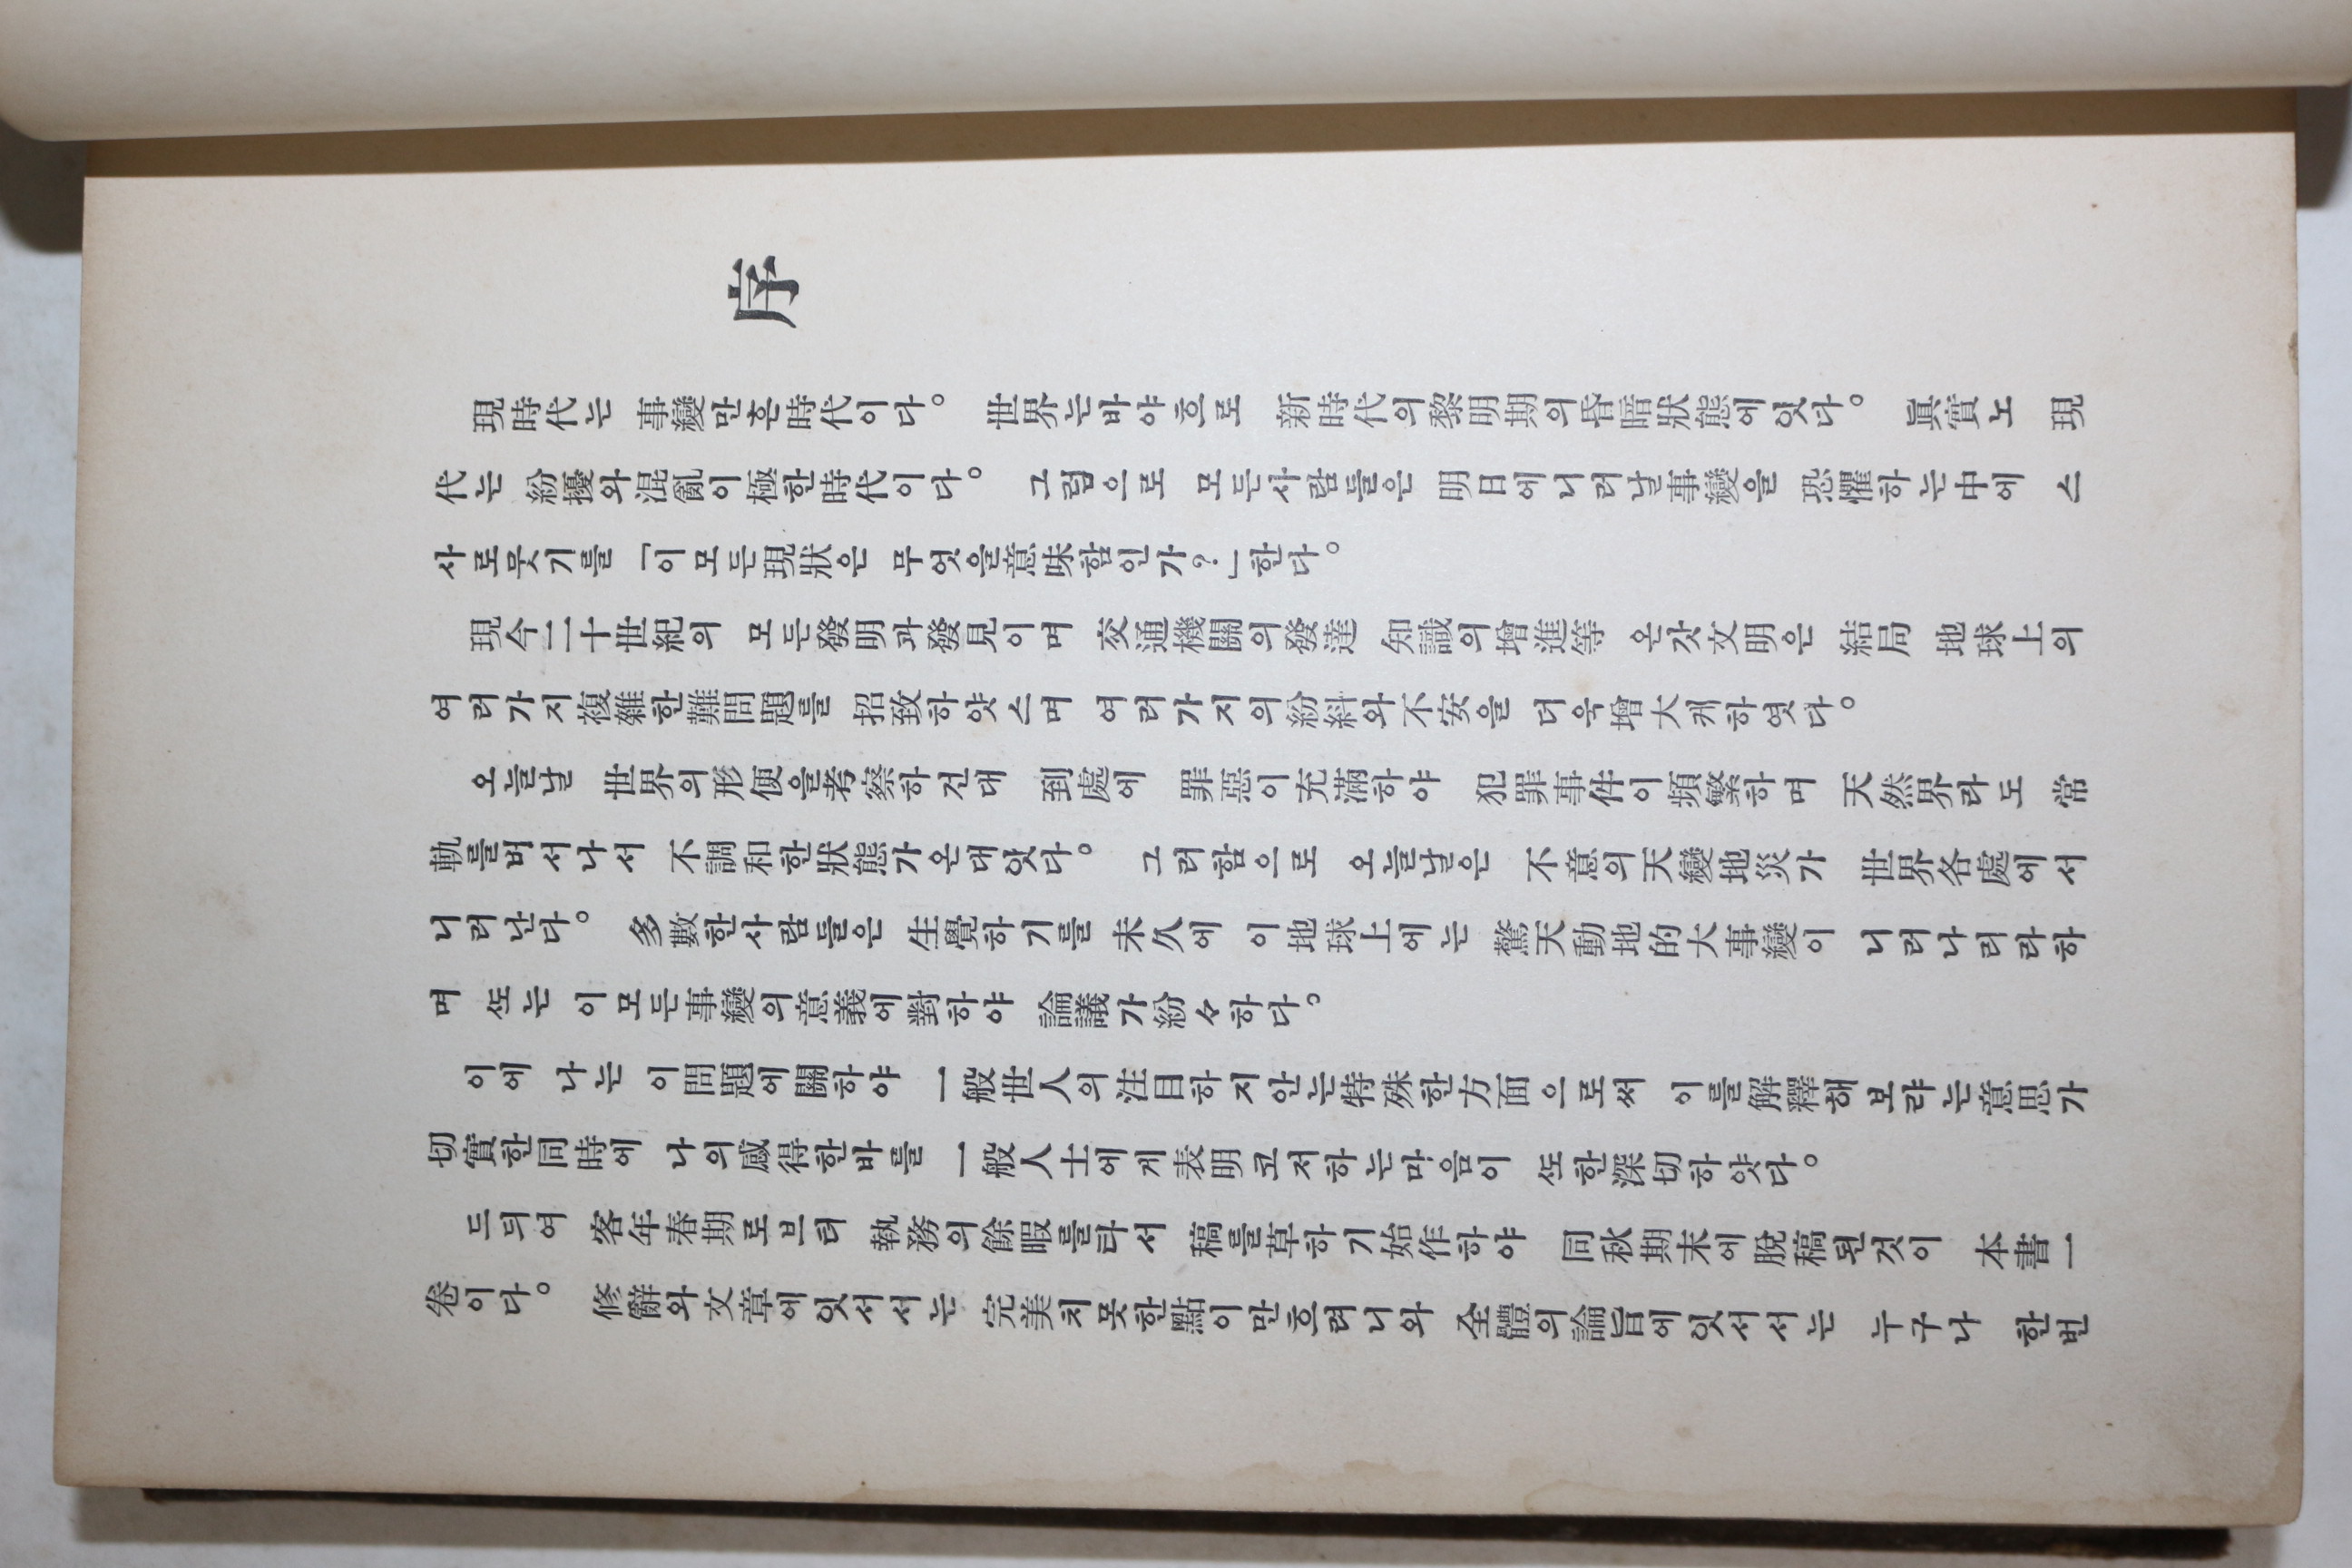 序
現時代는 事變만흔時代이다。 世界는바야흐로 新時代의黎明期의昏暗狀態에잇다。 眞實노 現
代는 紛擾와混亂이極한時代이다。 그럼으로 모든사람들은 明日에니러날事變을 恐懼하는中에 스
사로뭇기를「이모든現狀은 무엇을意味함인가?」한다。
現今二十世紀의 모든發明과發見이며 交通機關의發達 知識의增進等 온갓文明은 結局 地球上의
여러가지複雜한難問題를 招致하얏스며 여러가지의紛糾와不安을 더욱增大케하엿다。
오늘날 世界의形便을考察하건대 到處에 罪惡이充滿하야 犯罪事件이頻繁하며 天然界라도 常
軌를버서나서 不調和한狀態가온대잇다。 그러함으로 오늘날은 不意의天變地災가 世界各處에서
니러난다。 多數한사람들은 生覺하기를 未久에 이地球上에는 驚天動地的大事變이 니러나리라하
며 ᄯᅩ는 이모든事變의意義에對하야 論議가紛々하다。
이에 나는 이問題에關하야 一般世人의注目하지안는特殊한方面으로써 이를解釋해보랴는意思가
切實한同時에 나의感得한바를 一般人士에게表明코저하는마음이 ᄯᅩ한深切하얏다。
드듸여 客年春期로브터 執務의餘暇를타서 稿를草하기始作하야 同秋期末에脫稿된것이 本書一
卷이다。 修辭와文章에잇서서는 完美치못한點이만흐려니와 全體의論旨에잇서서는 누구나 한번